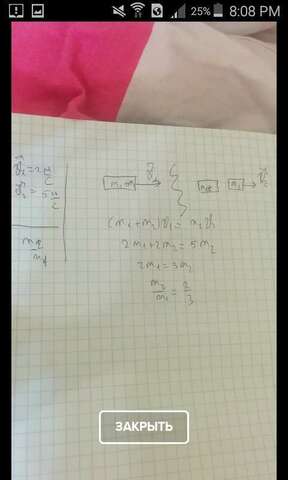 25% 8:08 PM
V₁ = 2 м/с
V₂ = 5 м/с
m₂/m₁
m₁ m₂ V₁ m₂ m₁ V₂
2m₁ + 2m₂ = 5m₂
2m₁ = 3m₂
m₂/m₁ = 2/3
ЗАКРЫТЬ